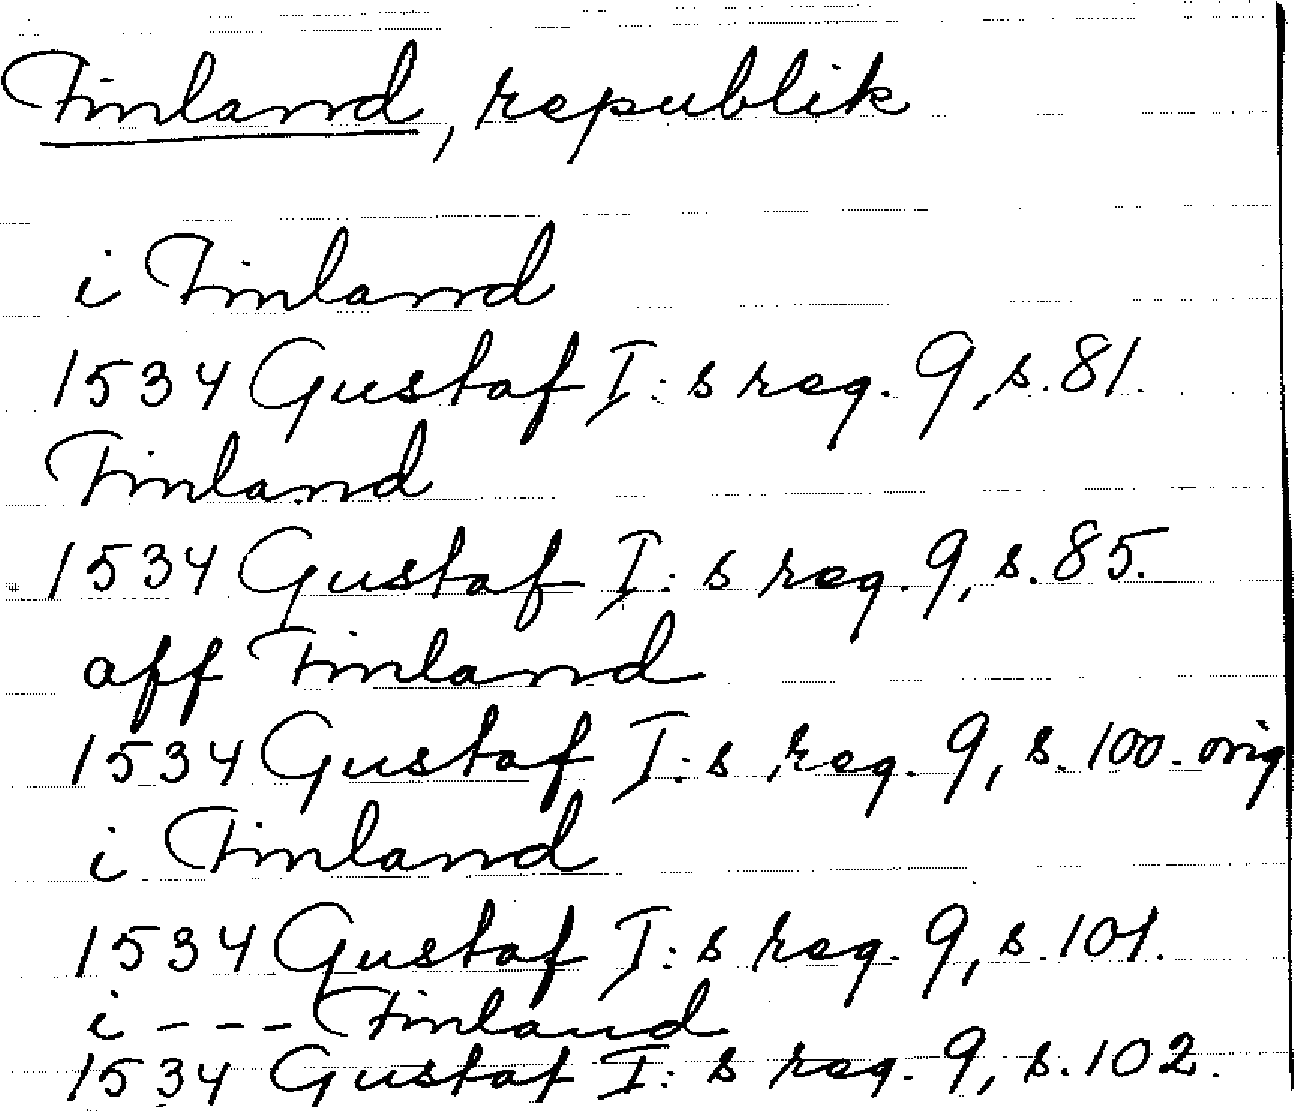 Finland, republik
i Finland
1534 Gustaf I:s reg. 9, s. 81.
Finland
1534 Gustaf I:s reg. 9, s. 85.
aff Finland
1534 Gustaf I:s reg. 9, s. 100. orig
i Finland
1534 Gustaf I:s reg. 9, s. 101.
i - - - Finland
1534 Gustaf I:s reg. 9, s. 102.